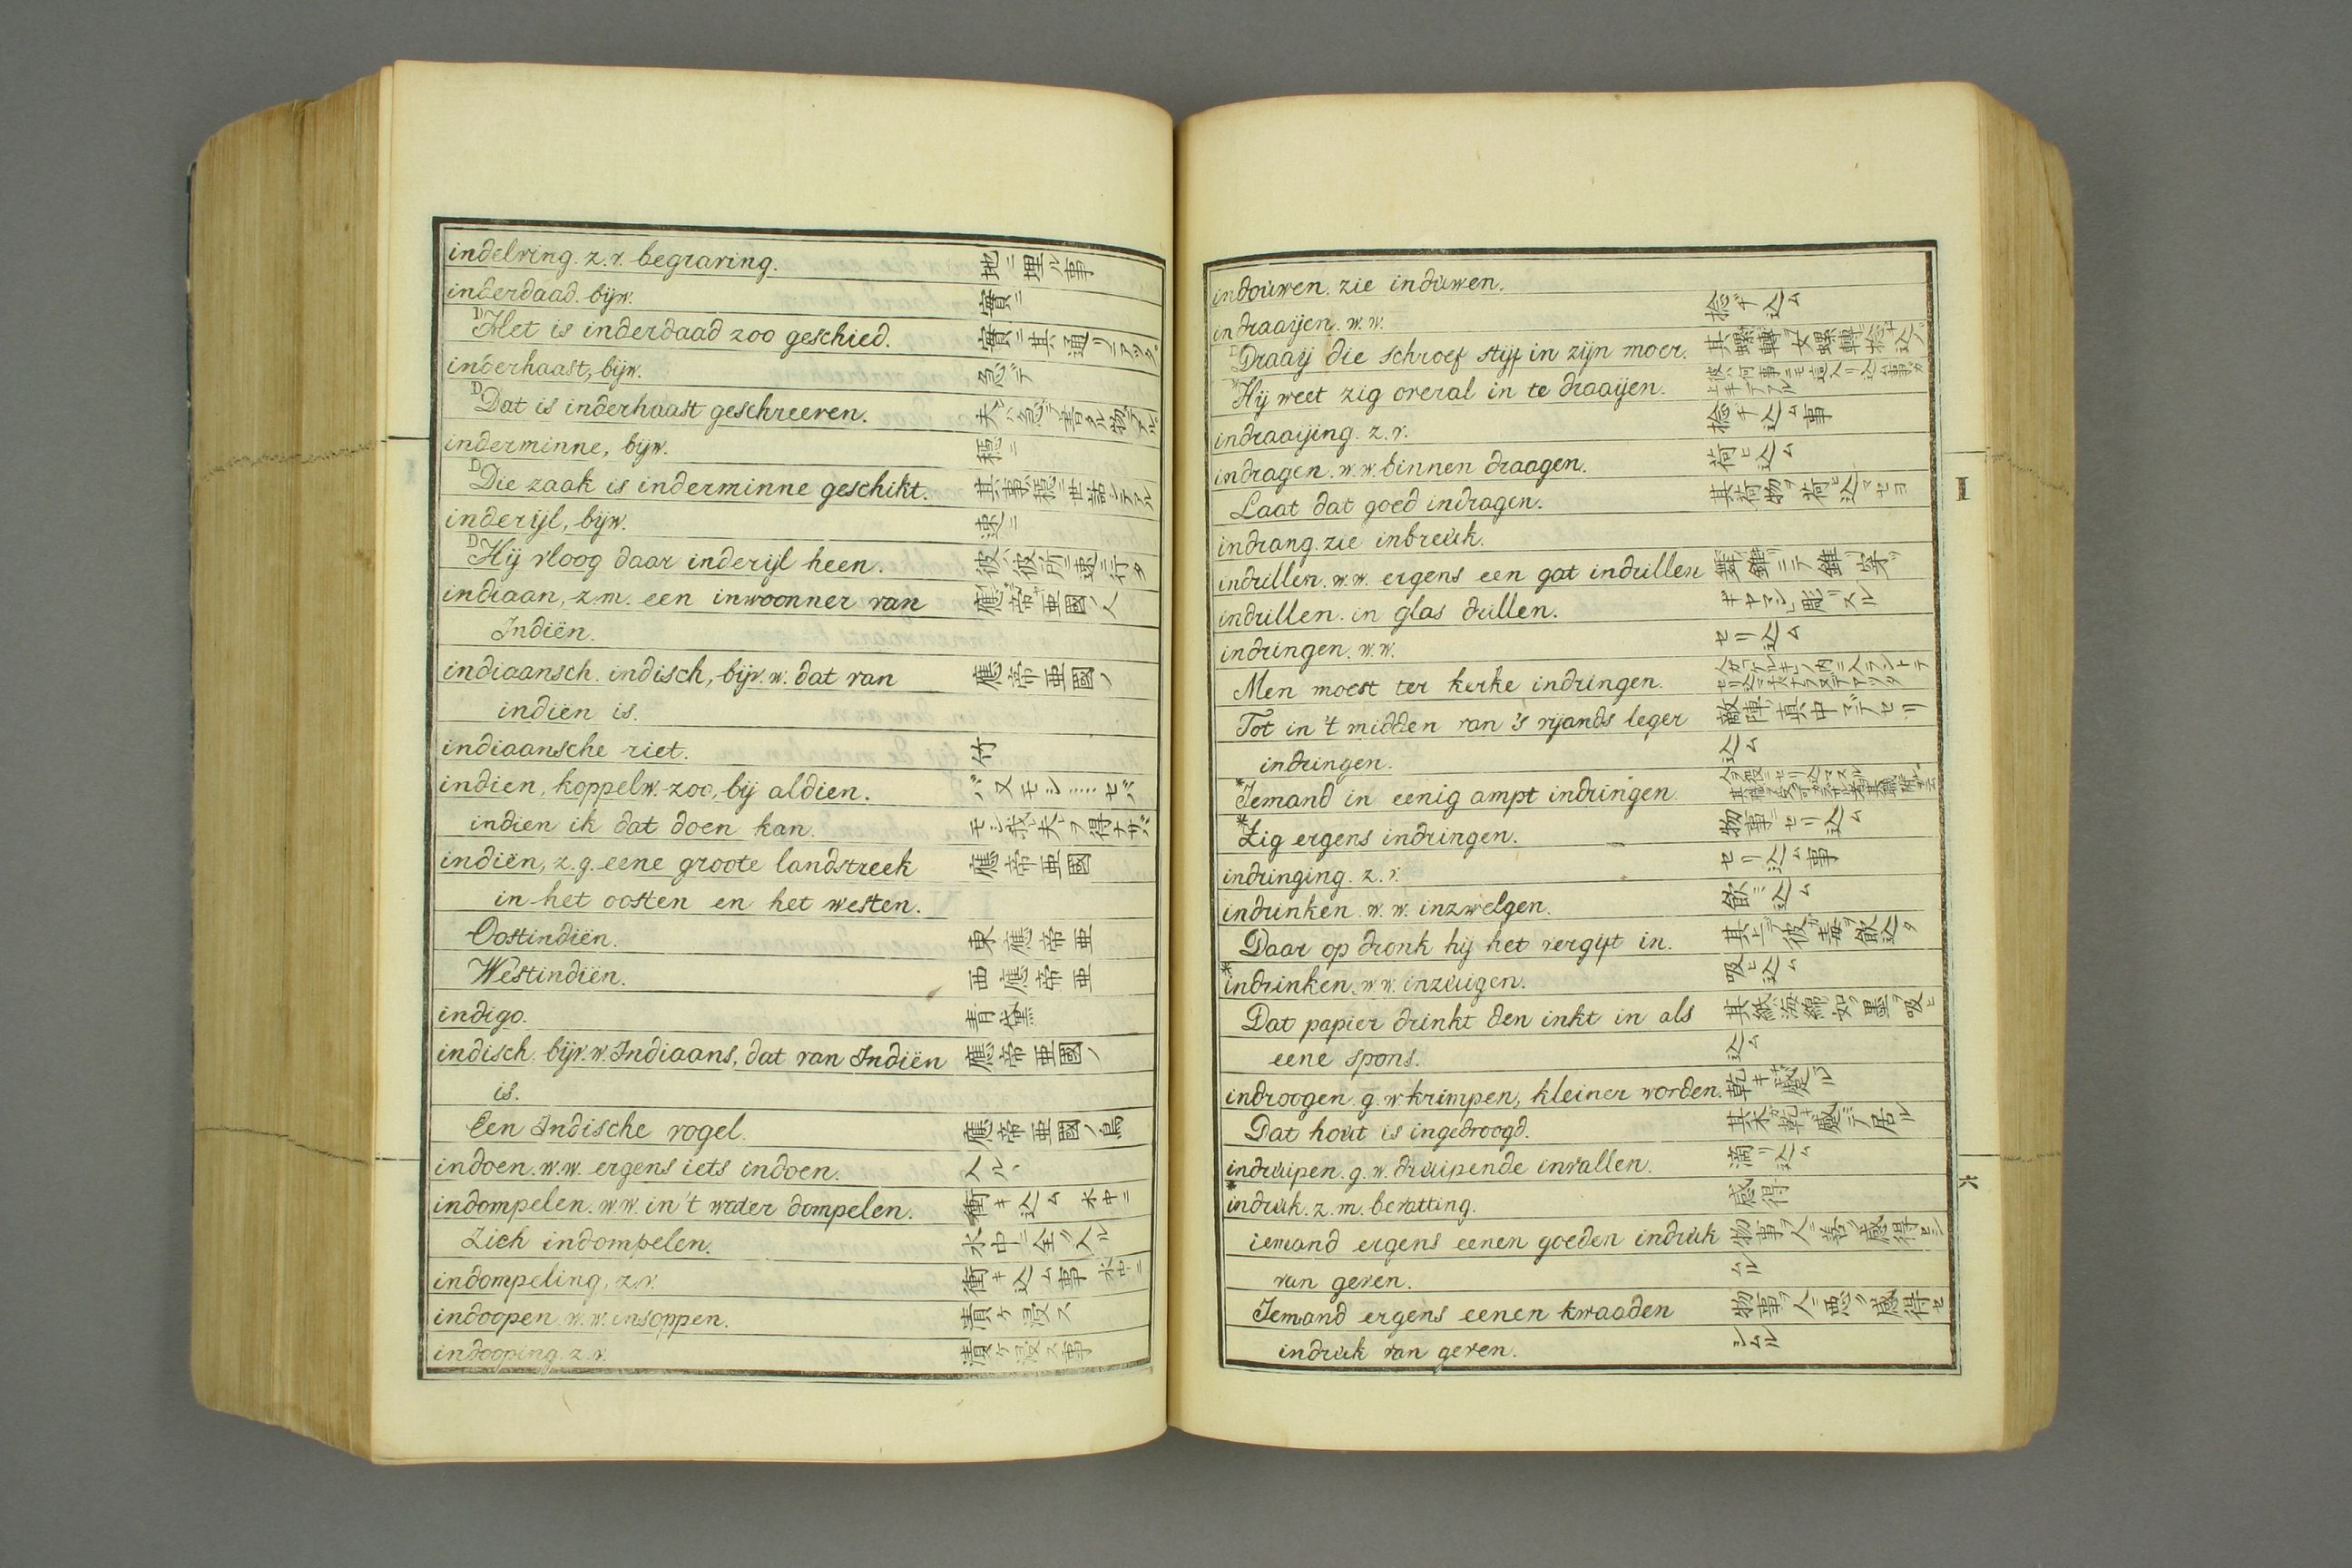 indelving. z.v. begraving. 地ニ埋ル事
inderdaad. bijw. 實ニ
DHet is inderdaad zoo geschied. 實ニ其通リニアッタ
inderhaast, bijw. 急デ
DDat is inderhaast geschreeven. 夫ハ急デ書タル物デアル
inderminne, bijw. 穏ニ
DDie zaak is inderminne geschikt. 其事ハ穏ニ世話シテアル
inderijl, bijw. 速ニ
DHij vloog daar inderijl heen. 彼ハ彼所ニ速ニ行タ
indiaan, z.m. een inwoonner van 應帝亜國ノ人
Indiën.
indiaansch. indisch, bijv. w. dat van 應帝亜國ノ
indiën is.
indiaansche riet. 竹
indien, koppelw. zoo, bij aldien. バ又モシ……セバ
indien ik dat doen kan. モシ我夫ヲ得ナサバ
indiën, z.g. eene groote landstreek 應帝亜國
in het oosten en het westen.
Oostindiën. 東應帝亜
Westindiën. 西應帝亜
indigo. 青黛
indisch. bijv. w. Indiaans, dat van Indiën 應帝亜國ノ
is.
Een Indische vogel. 應帝亜國ノ鳥
indoen. w.w. ergens iets indoen. 入ル丶
indompelen. w.w. in't water dompelen. 衝キ込ム 水中ニ
Zich indompelen. 水中ニ全ク入ル
indompeling, z.v. 衝キ込ム事 水中ニ
indoopen. w.w. insoppen. 漬ケ浸ス
indooping. z.v. 漬ケ浸ス事
indoúwen. zie indúwen.
indraaijen. w.w. 捻ヂ込ム
DDraaij die schroef stijf in zijn moer.
*Hij weet zig overal in te draaijen.
indraaijing. z.v. 捻ヂ込ム事
indragen. w.w. binnen draagen. 荷ヒ込ム
Laat dat goed indragen. 其荷物ヲ荷ヒ込マセヨ
indrang. zie inbreúk.
indrillen. w.w. ergens een gat indrillen
indrillen. in glas drillen.
indringen. w.w. セリ込ム
Men moest ter kerke indringen.
Tot in 't midden van 's vijands leger 敵陣ノ真中マデセリ
indringen. 込ム
*Iemand in eenig ampt indringen.
*Zig ergens indringen. 物事ニセリ込ム
indringing. z.v. セリ込ム事
indrinken. w.w. inzwelgen. 飲ミ込ム
Daar op dronk hij het vergift in. 其上デ彼ガ毒ヲ飲込タ
*indrinken. w.w. inzúigen. 吸ヒ込ム
Dat papier drinkt den inkt in als 其紙ハ海綿ノ如ク墨ヲ吸ヒ
eene spons. 込ム
indroogen. g.w. krimpen, kleiner worden.
Dat hoút is ingedroogd.
indrúipen. g.w. drúipende invallen. 滴リ込ム
*indrúk. z.m. bevatting. 感得
iemand ergens eenen goeden indrúk 物事ヲ人ニ善ク感得セシ
van geven. ムル
Iemand ergens eenen kwaaden 物事ヲ人ニ悪ク感得セ
indrúk van geven. シムル
I
六